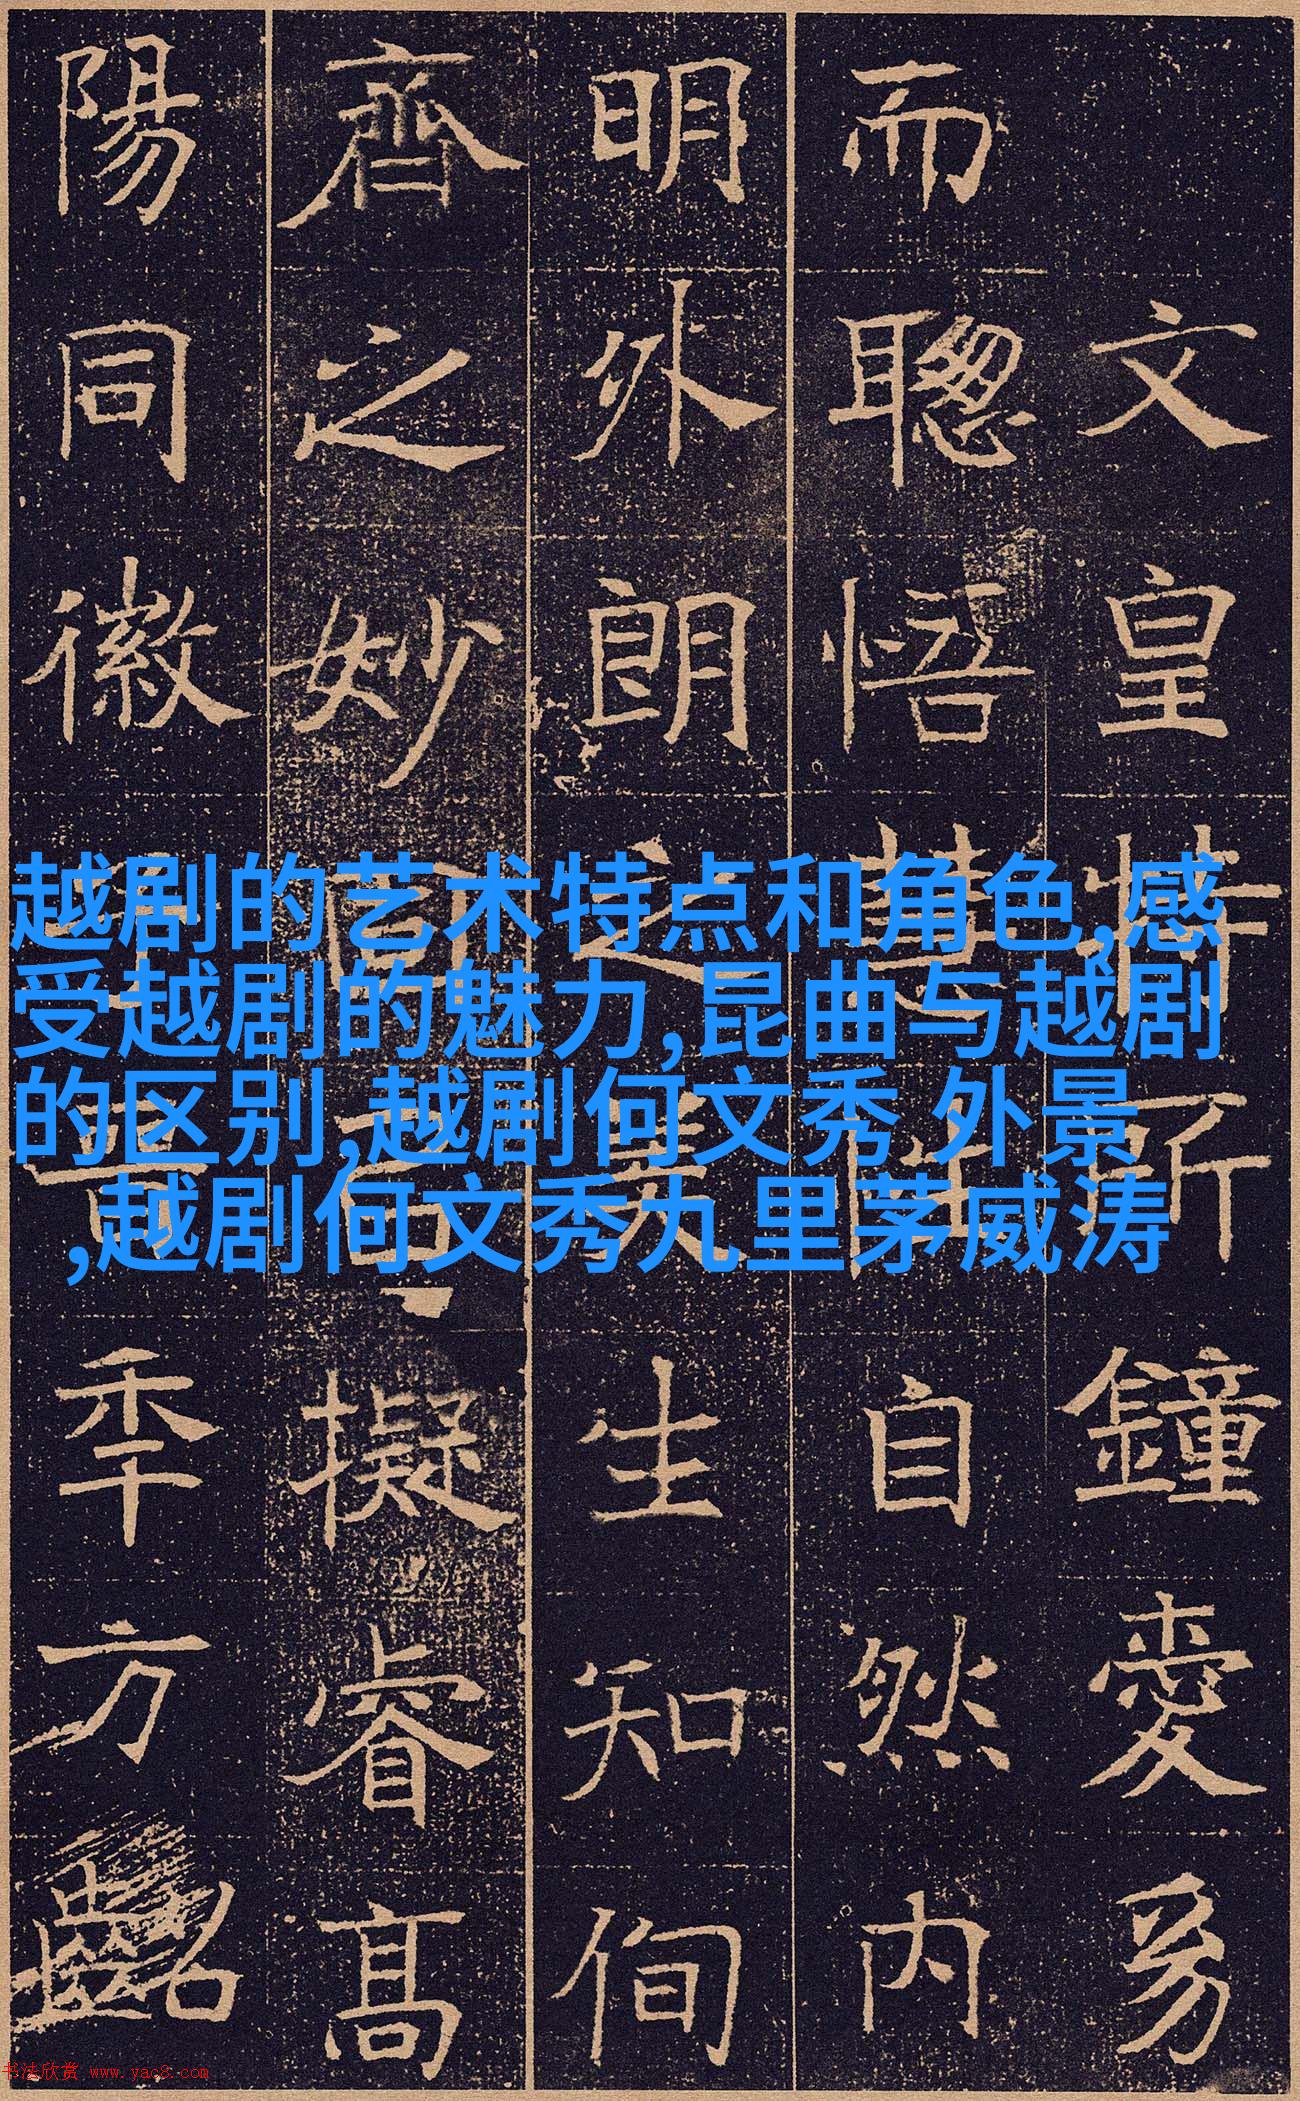 文皇特所鍾愛
而聰悟慧性自然內
明外朗之美生知侚
齊之妙擬睿高
陽同徽季方
越剧的艺术特点和角色,感
受越剧的魅力,昆曲与越剧
的区别,越剧何文秀 外景
,越剧何文秀九里茅威涛
书法欣赏 www.yac8.com